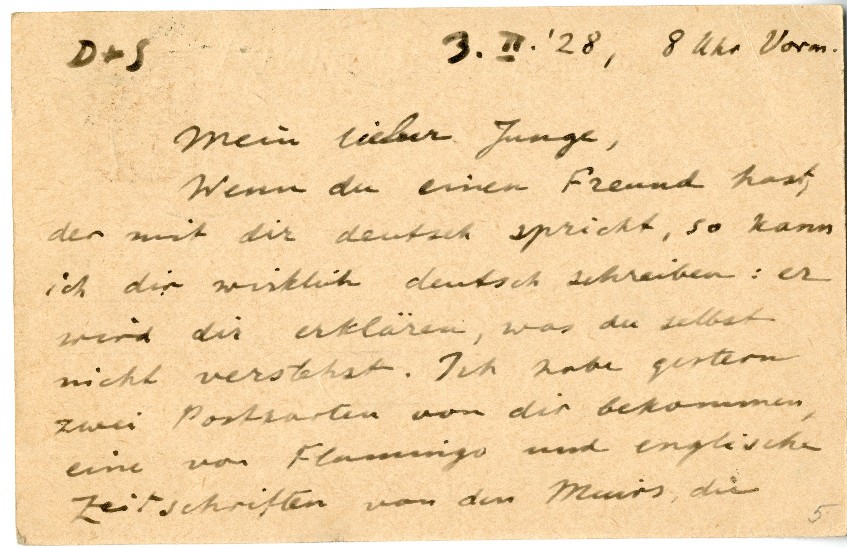 D+S 3. II. '28, 8 Uhr Vorm.
Mein lieber Junge,
Wenn du einen Freund hast,
der mit dir deutsch spricht, so kann
ich dir wirklich deutsch schreiben: er
wird dir erklären, was du selbst
nicht verstehst. Ich habe gestern
zwei Postkarten von dir bekommen,
eine von Flamingo und englische
Zeitschriften von den Muirs, die
5